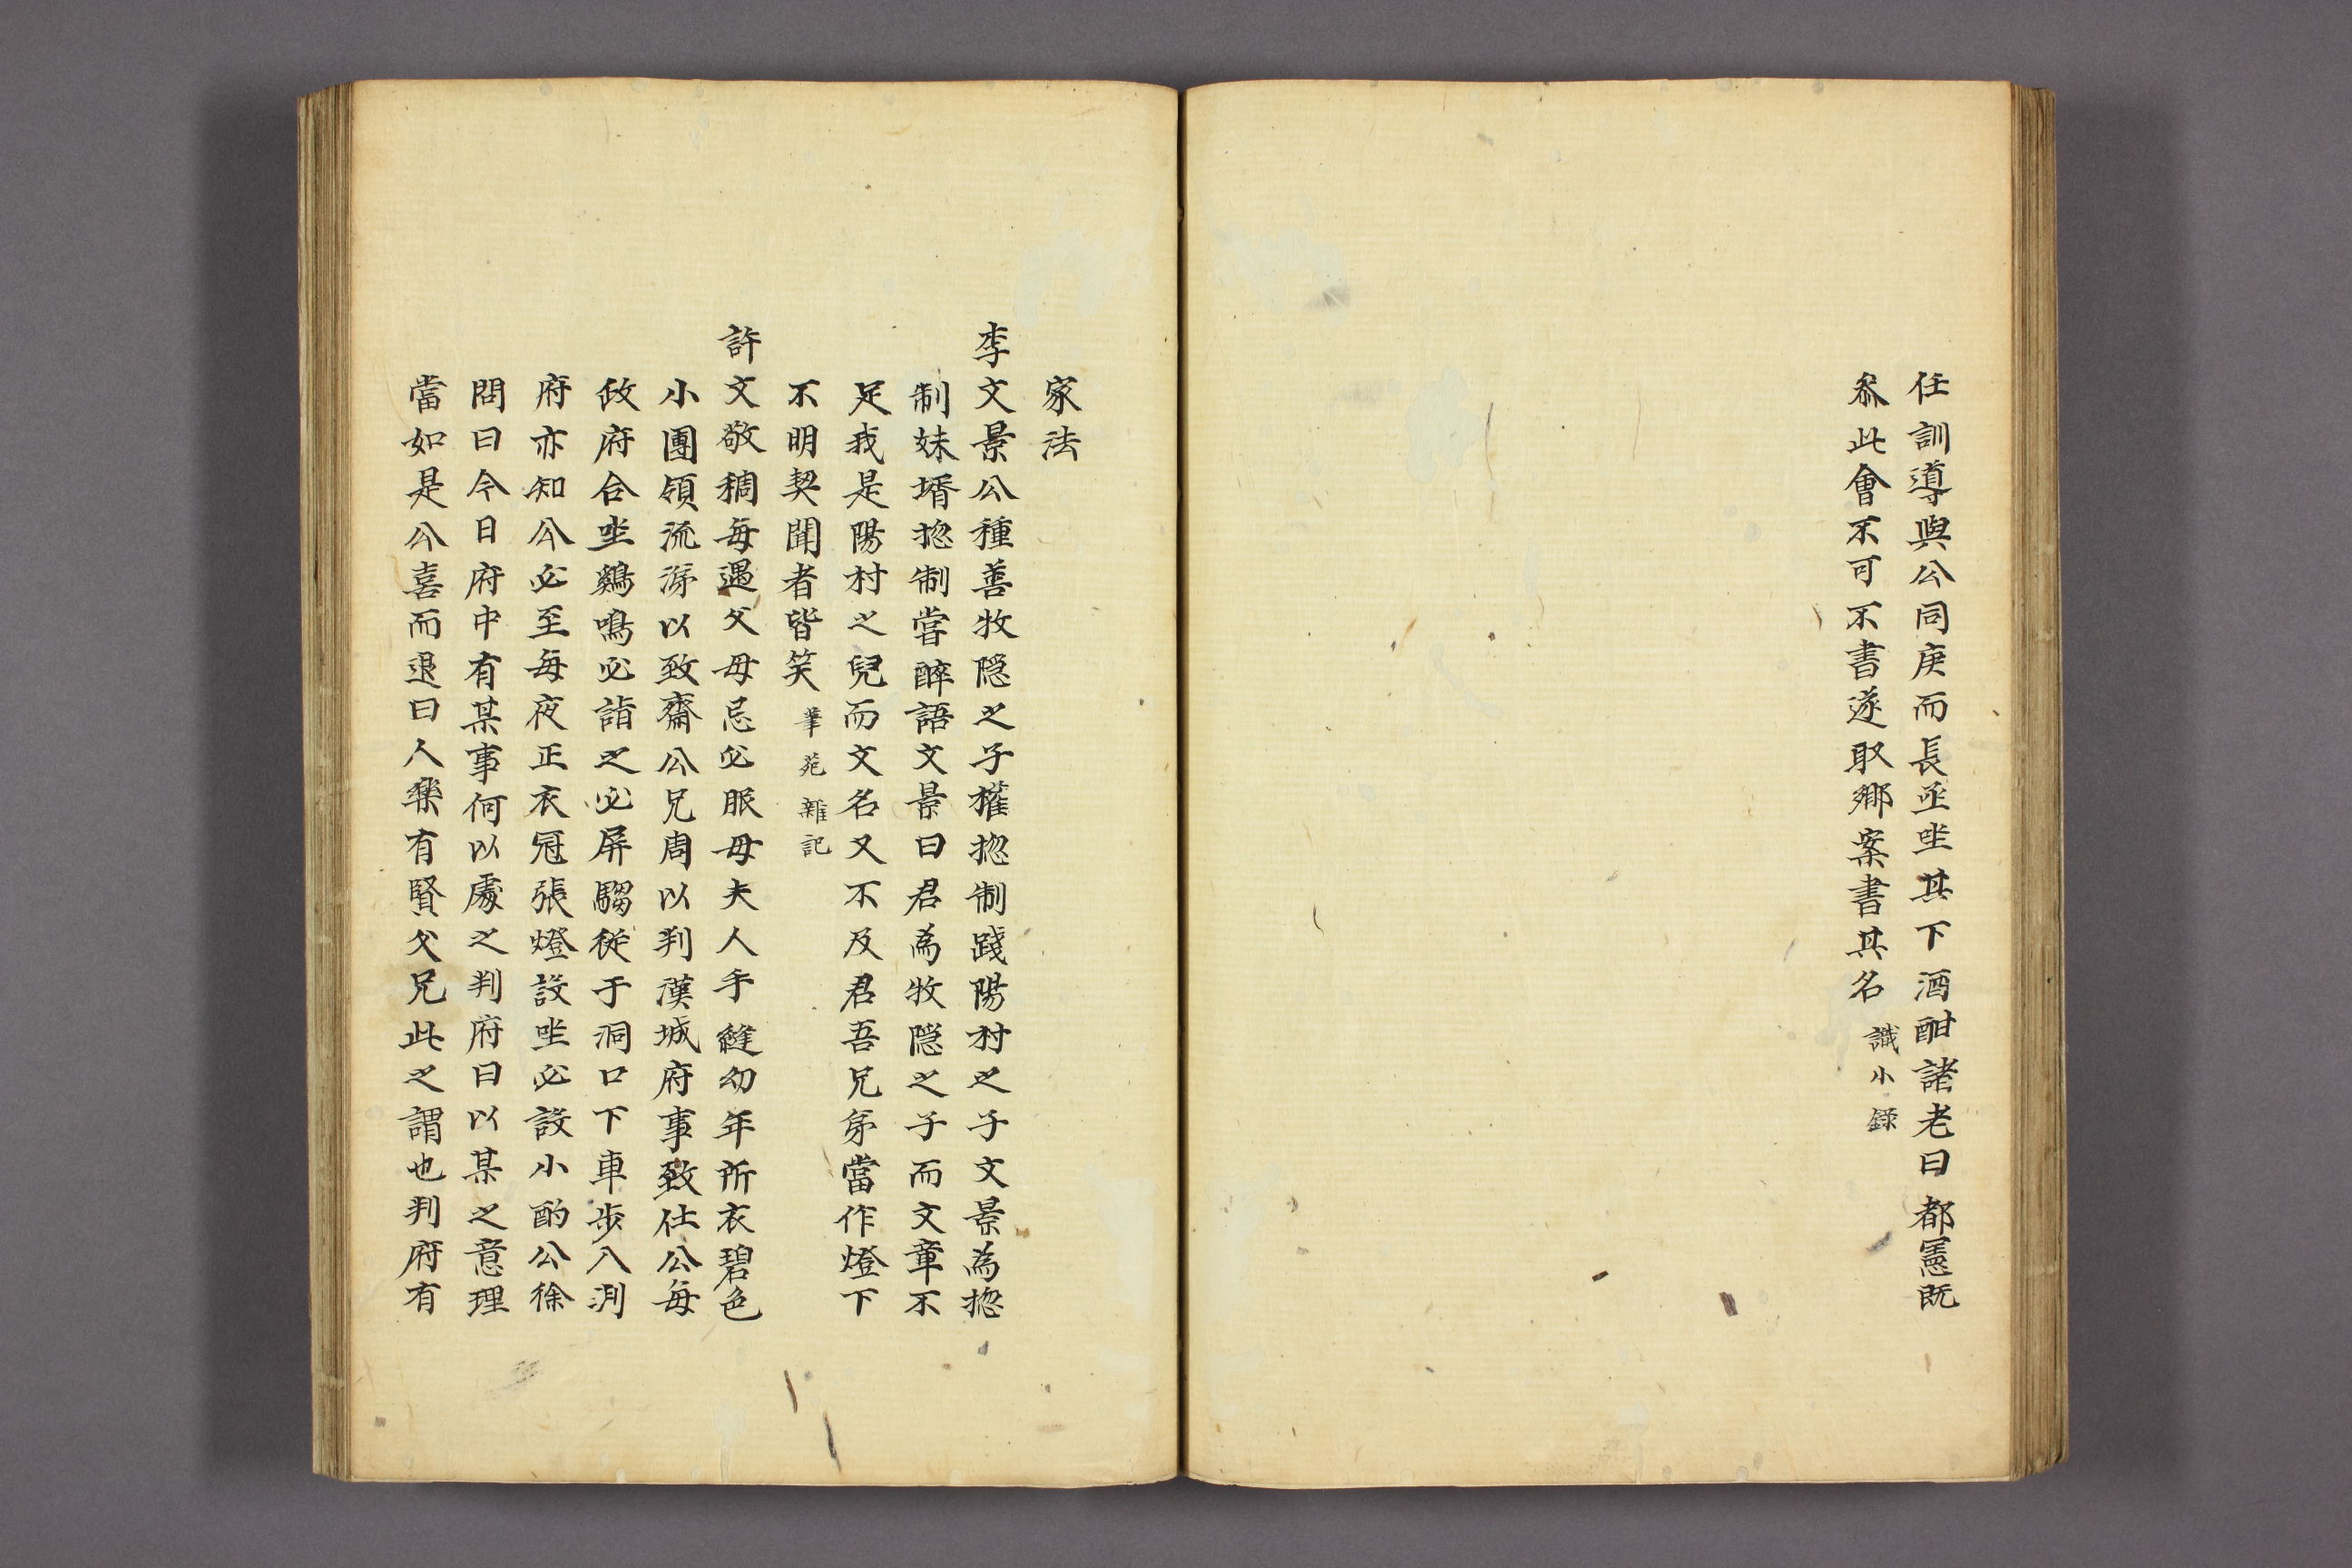 任訓導與公同庚而長丞坐其下酒酣諸老曰都憲既
叅此會不可不書遂取鄉案書其名 識小錄
家法
李文景公種善牧隠之子權揔制踐陽村之子文景為揔
制妹壻揔制嘗醉語文景曰君為牧隠之子而文章不
足我是陽村之兒而文名又不及君吾兄弟當作燈下
不明契聞者皆笑 筆苑雜記
許文敬稠每遇父母忌必服母夫人手縫幼年所衣碧色
小團領流涕以致齋公兄周以判漢城府事致仕公每
政府合坐鷄鳴必詣之必屏騶從于洞口下車步入判
府亦知公必至每夜正衣冠張燈設坐必設小酌公徐
問曰今日府中有某事何以處之判府曰以某之意理
當如是公喜而退曰人樂有賢父兄此之謂也判府有